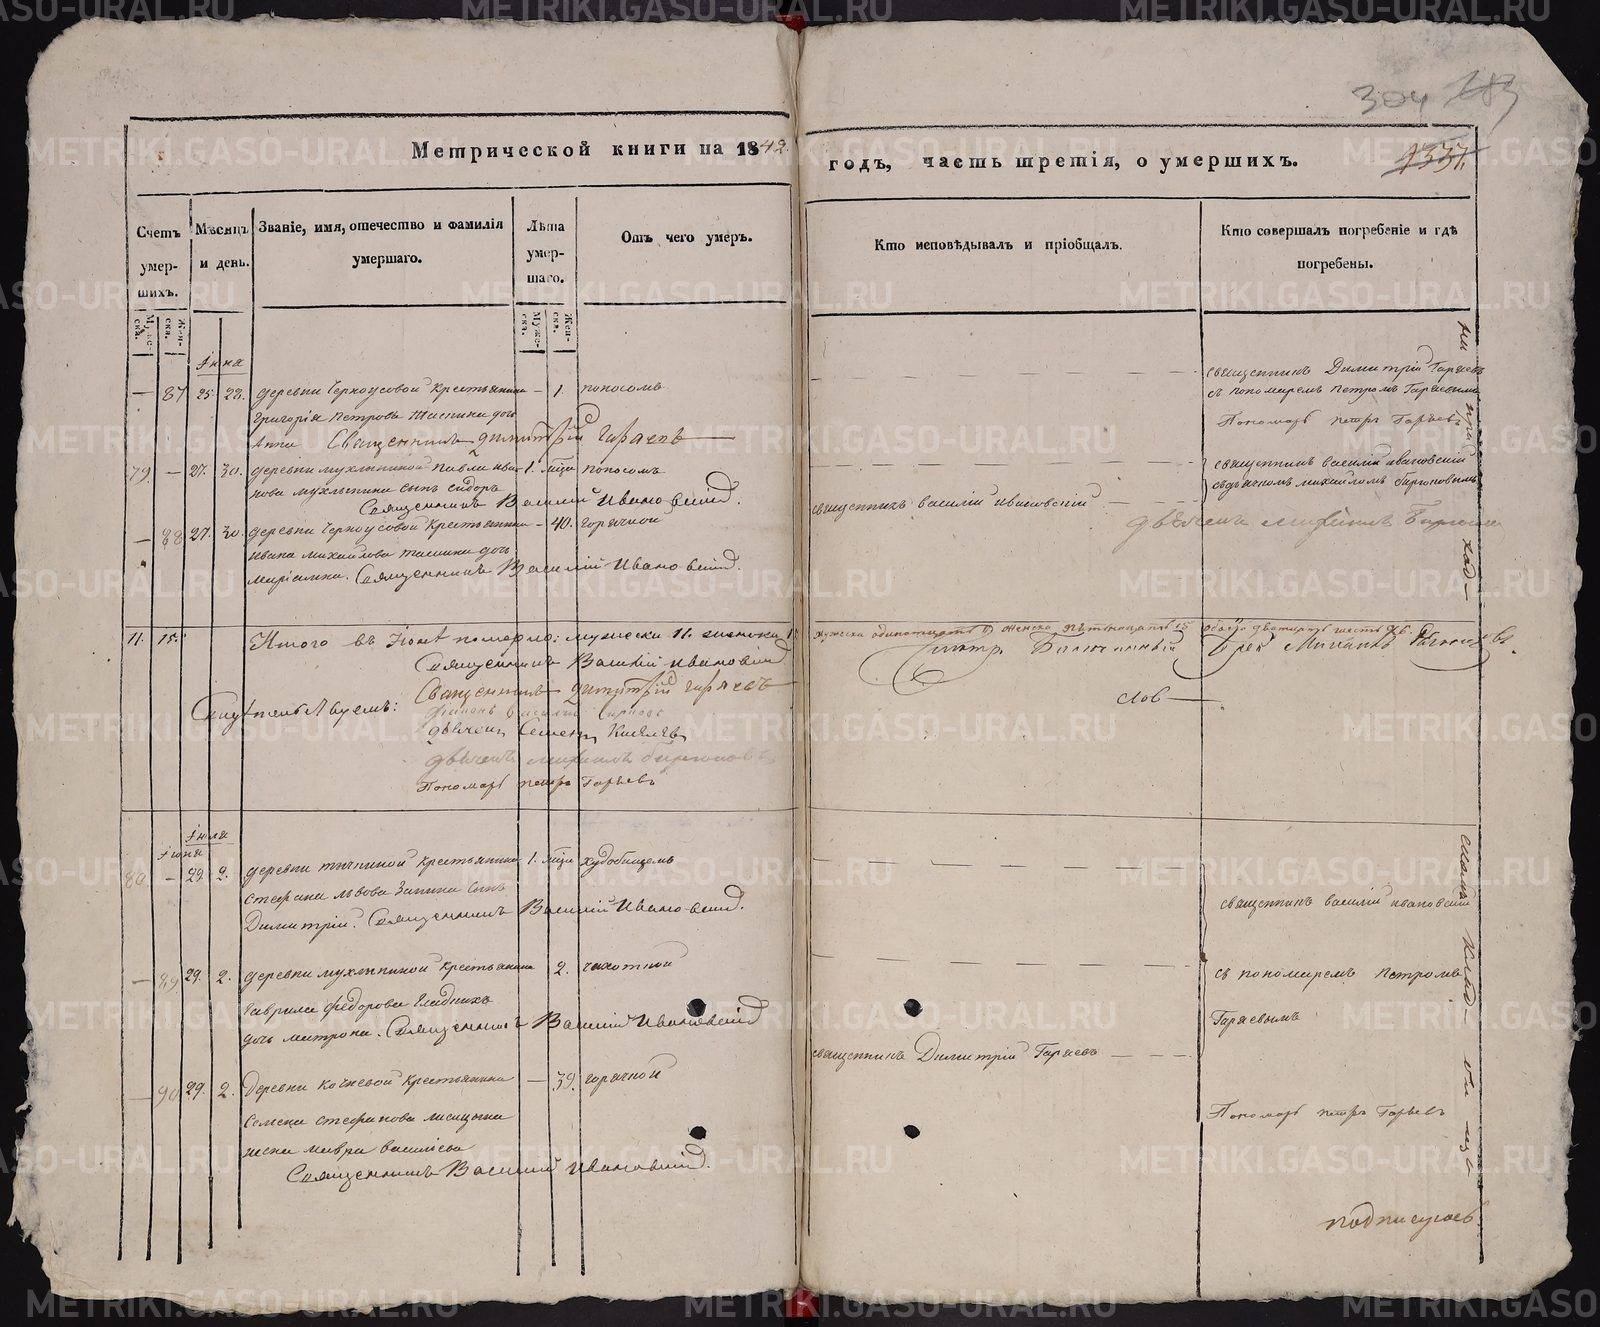 304 183
Метрической книги на 1842. годъ, часть третія, о умершихъ. 1337.
Счетъ умершихъ.
Мѣсяцъ и день.
Званіе, имя, отечество и фамилія умершаго.
Лѣта умершаго.
Отъ чего умеръ.
Кто исповѣдывалъ и пріобщалъ.
Кто совершалъ погребеніе и гдѣ погребены.
Мужеска.
Женска.
Мужеска.
Женска.
Іюня
— 87 25. 28. деревни Черноусовой крестьянина — 1. поносомъ
Григорія Петрова дочь
Анна Священникъ Димитрій Гаряевъ
священникъ Димитрій Гаряевъ
съ пономаремъ Петромъ Гаряевымъ
Пономарь Петръ Гаряевъ
79. — 27. 30. деревни Мухлыниной Павла Ива- 1. мѣся поносомъ
нова Мухлынина сынъ Сидоръ
Священникъ Василій Ивановскій.
священникъ Василій Ивановскій
съ дьячкомъ Михайломъ Бирюковымъ
— 88 27. 30. деревни Черноусовой крестьянина — 40. горячкой
Ивана Михайлова дочь
Маріамна. Священникъ Василій Ивановскій.
священникъ Василій Ивановскій
дьячекъ Михаилъ Бирюковъ
11. 15. Итого въ Іюнѣ померло: мужеска 11. женска 15
мужеска одинатцать 11 женска пятьнацать 15 обоего двадцать шесть 26.
Священникъ Василій Ивановскій
Священникъ Димитрій Гаряевъ
Свидѣтельствуемъ:
дьячекъ Семенъ Киселевъ
дьячекъ Михаилъ Бирюковъ
Пономарь Петръ Гаряевъ
Іюля
Іюня
80 — 29. 2. деревни крестьянина 1. мѣся худобищемъ
Стефана Львова сынъ
Димитрій. Священникъ Василій Ивановскій.
священникъ Василій Ивановскій
— 89 29. 2. деревни Мухлыниной крестьянина 2. чахоткой
Гаврила Федорова Гладкихъ
дочь Матрона. Священникъ Василій Ивановскій
съ пономаремъ Петромъ
Гаряевымъ
священникъ Димитрій Гаряевъ
— 90 29. 2. Деревни Кочневой крестьянина — 39. горячкой
Семена Стефанова Лисицына
жена Мавра Васильева
Священникъ Василій Ивановскій.
Пономарь Петръ Гаряевъ
подписуюсь
METRIKI.GASO-URAL.RU